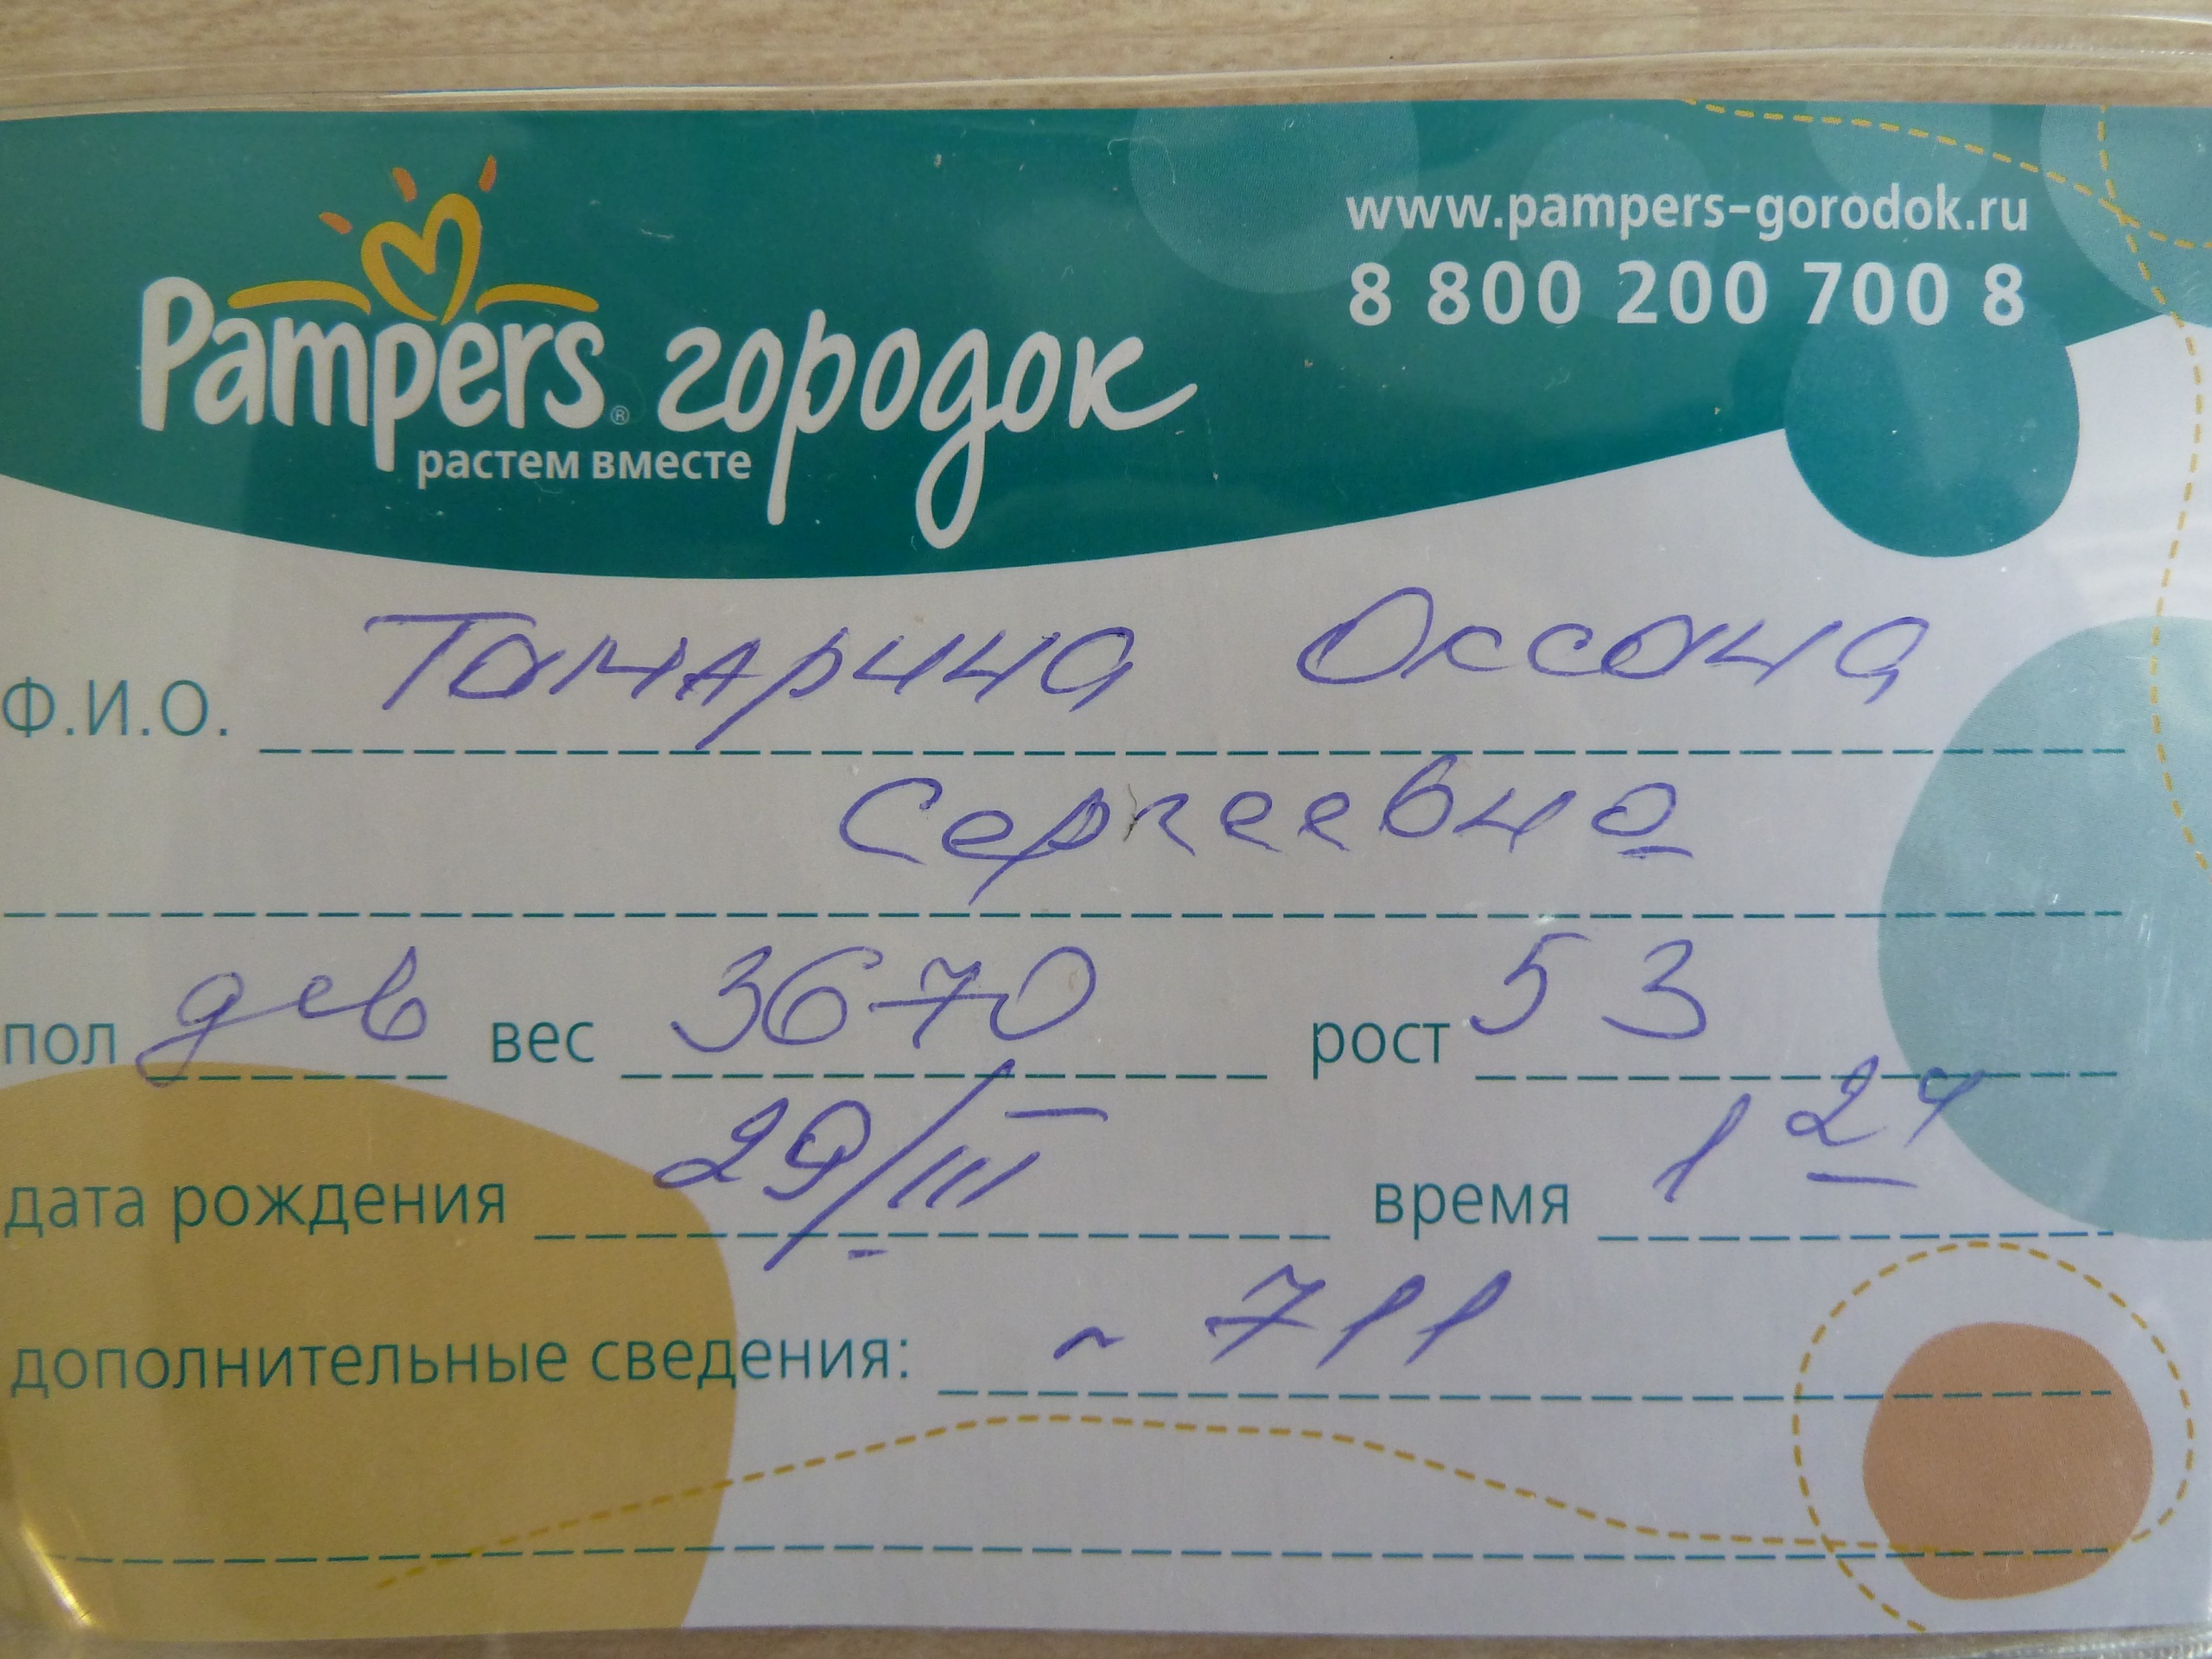 www.pampers-gorodok.ru
8 800 200 700 8
Pampers® городок
растем вместе
Ф.И.О. Оксана
Сергеевна
пол дев вес 3670 рост 53
дата рождения 29/III время 1 24
дополнительные сведения: ~ 711